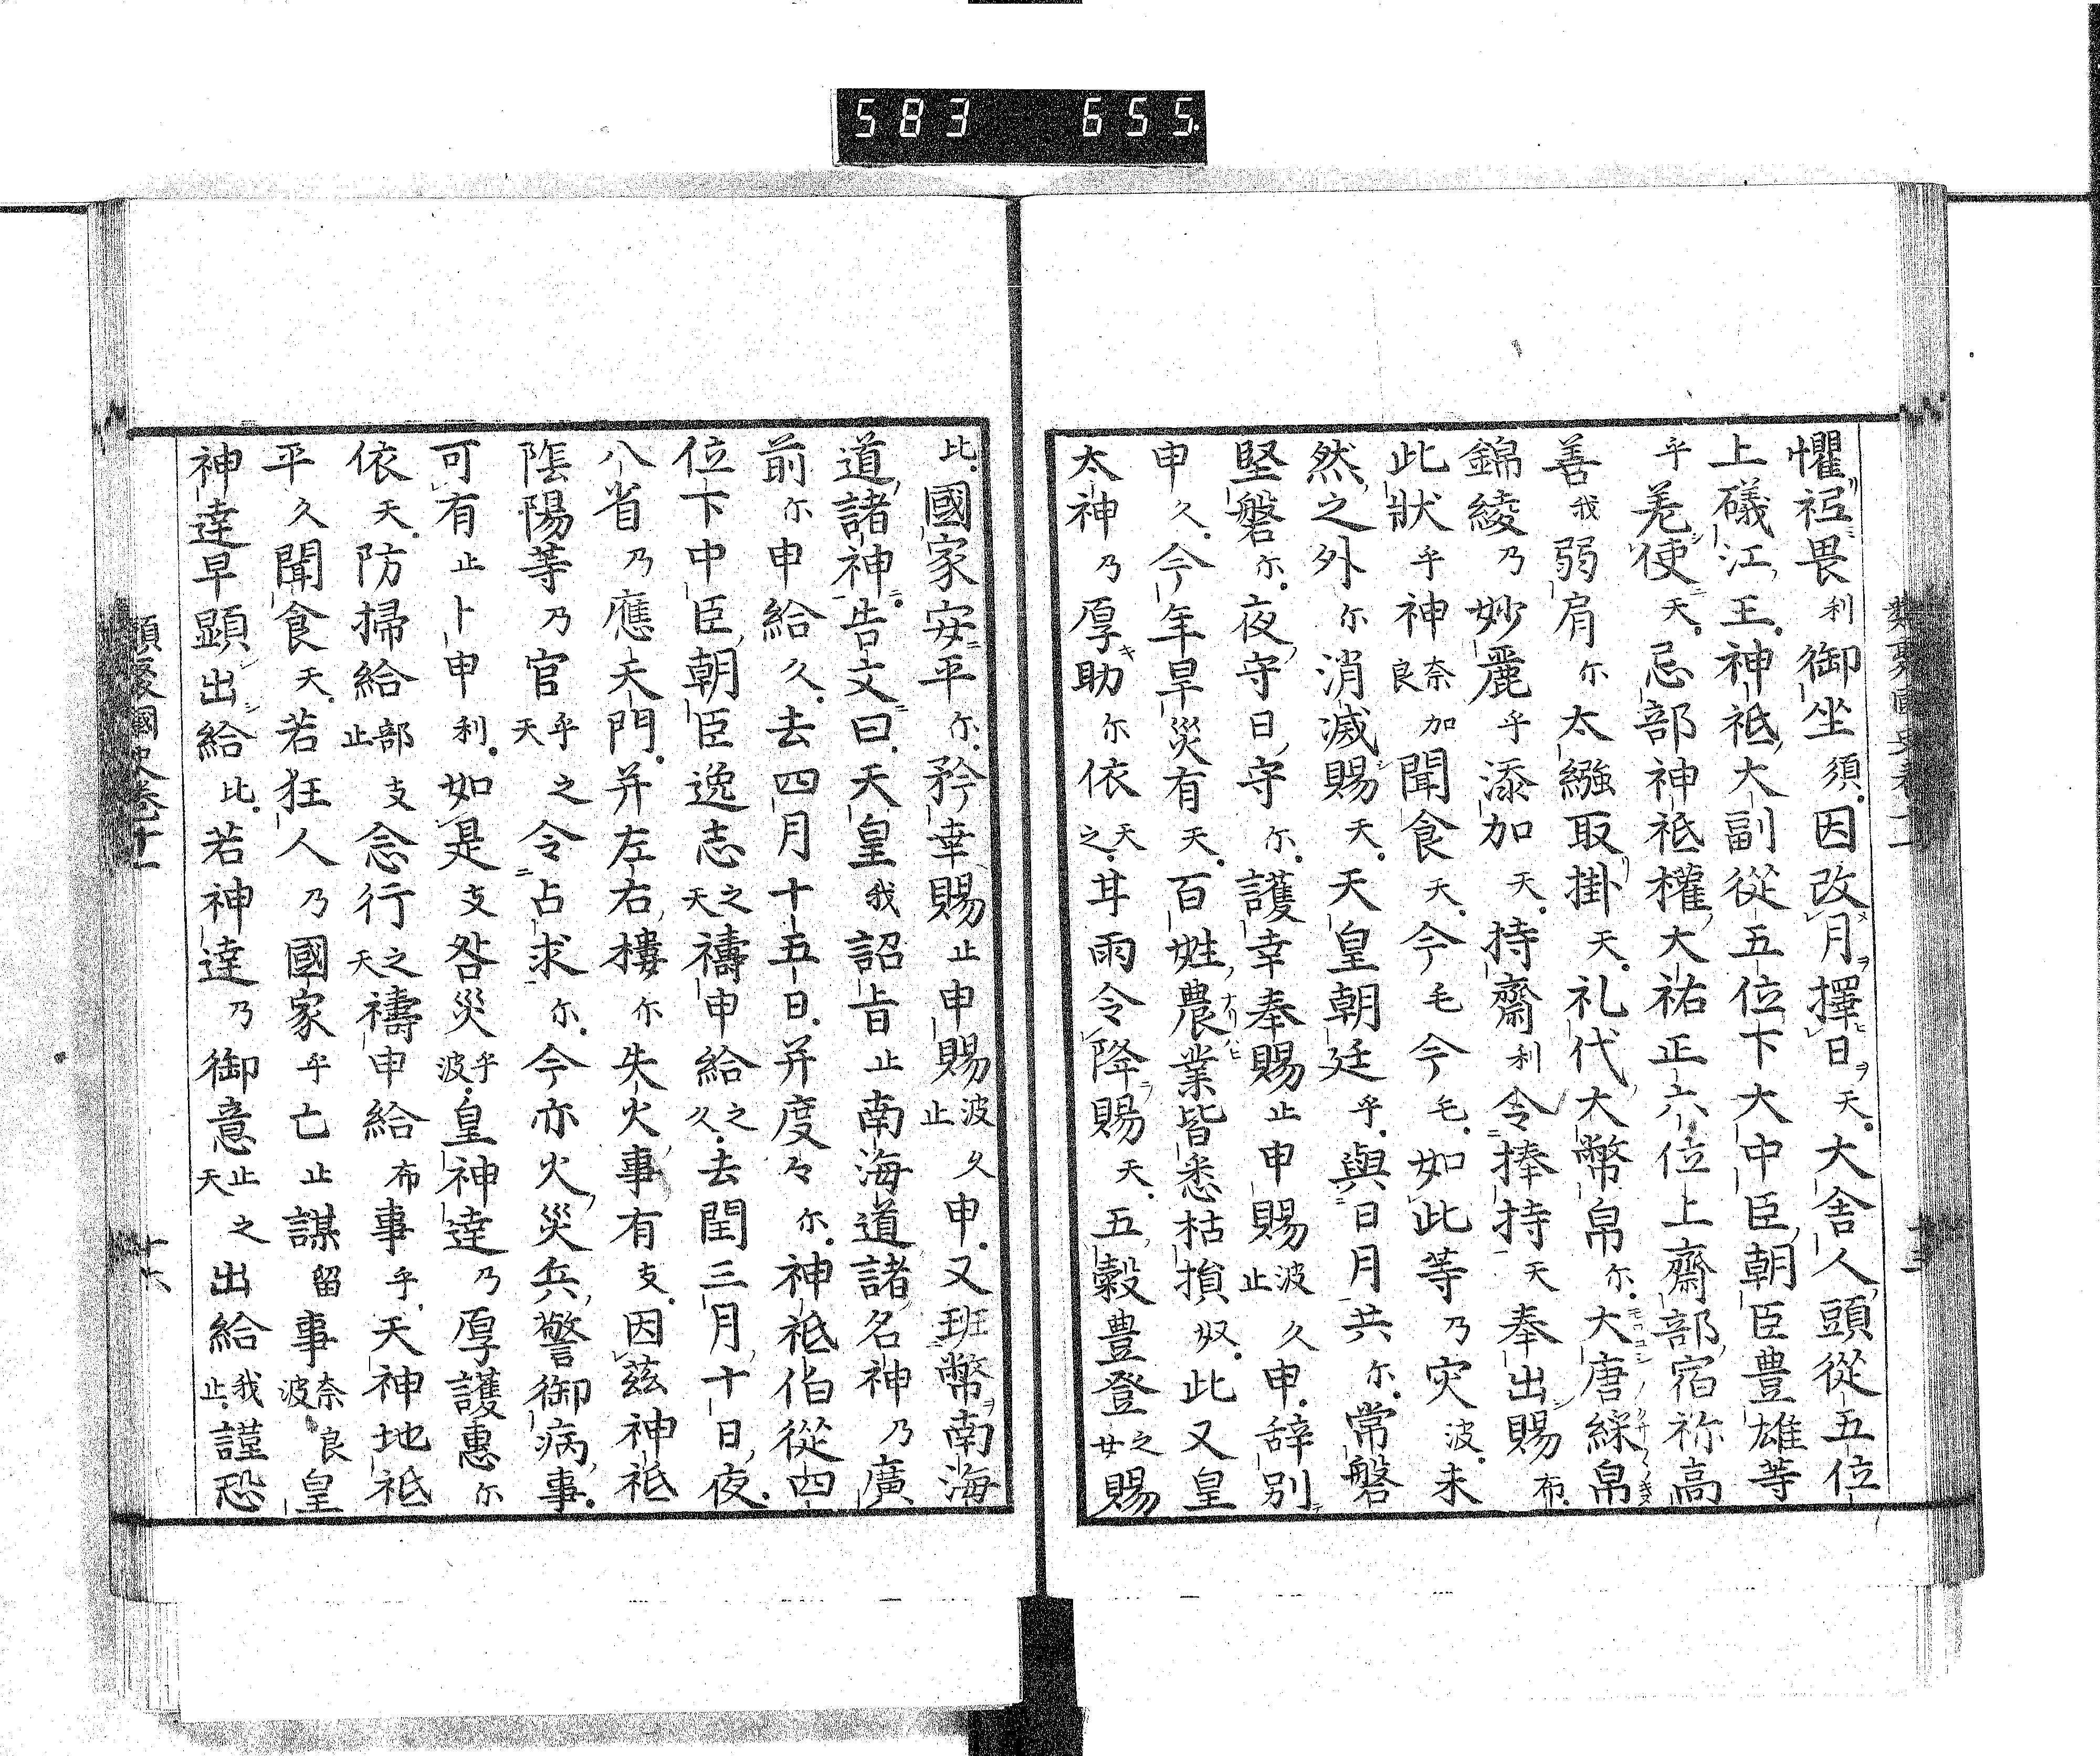 583 655
懼䄇畏利御坐須因改月擇日天大舍人頭從五位
上礒江王神祇大副從五位下大中臣朝臣豊雄等
乎差使天忌部神祇權大祐正六位上齋部宿祢高
善我弱肩尓太繦取掛天礼代大幣帛尓大唐綵帛
錦綾乃妙麗乎添加天持齋利令捧持天奉出賜布
此狀乎神奈良加聞食天今毛今毛如此等乃灾波未
然之外尓消滅賜天天皇朝廷乎與日月共尓常磐
堅磐尓夜守日守尓護幸奉賜止申賜波止久申辞別
申久今年旱災有天百姓農業皆悉枯損奴此又皇
太神乃厚助尓依天之甘雨令降賜天五穀豊登之女賜
比國家安平尓矜幸賜止申賜波止久申又班幣南海
道諸神告文曰天皇我詔旨止南海道諸名神乃廣
前尓申給久去四月十五日并度々尓神祇伯從四
位下中臣朝臣逸志之天禱申給之久去閏三月十日夜
八省乃應天門并左右樓尓失火事有支因茲神祇
陰陽等乃官乎天之令占求尓今亦火災兵警御病事
可有止卜申利如是支咎災乎波皇神達乃厚護惠尓
依天防掃給部止支念行之天禱申給布事乎天神地祇
平久聞食天若狂人乃國家乎亡止謀留事奈波良皇
神達早顕出給比若神達乃御意止天之出給我止謹恐
類聚國史卷十一
十六